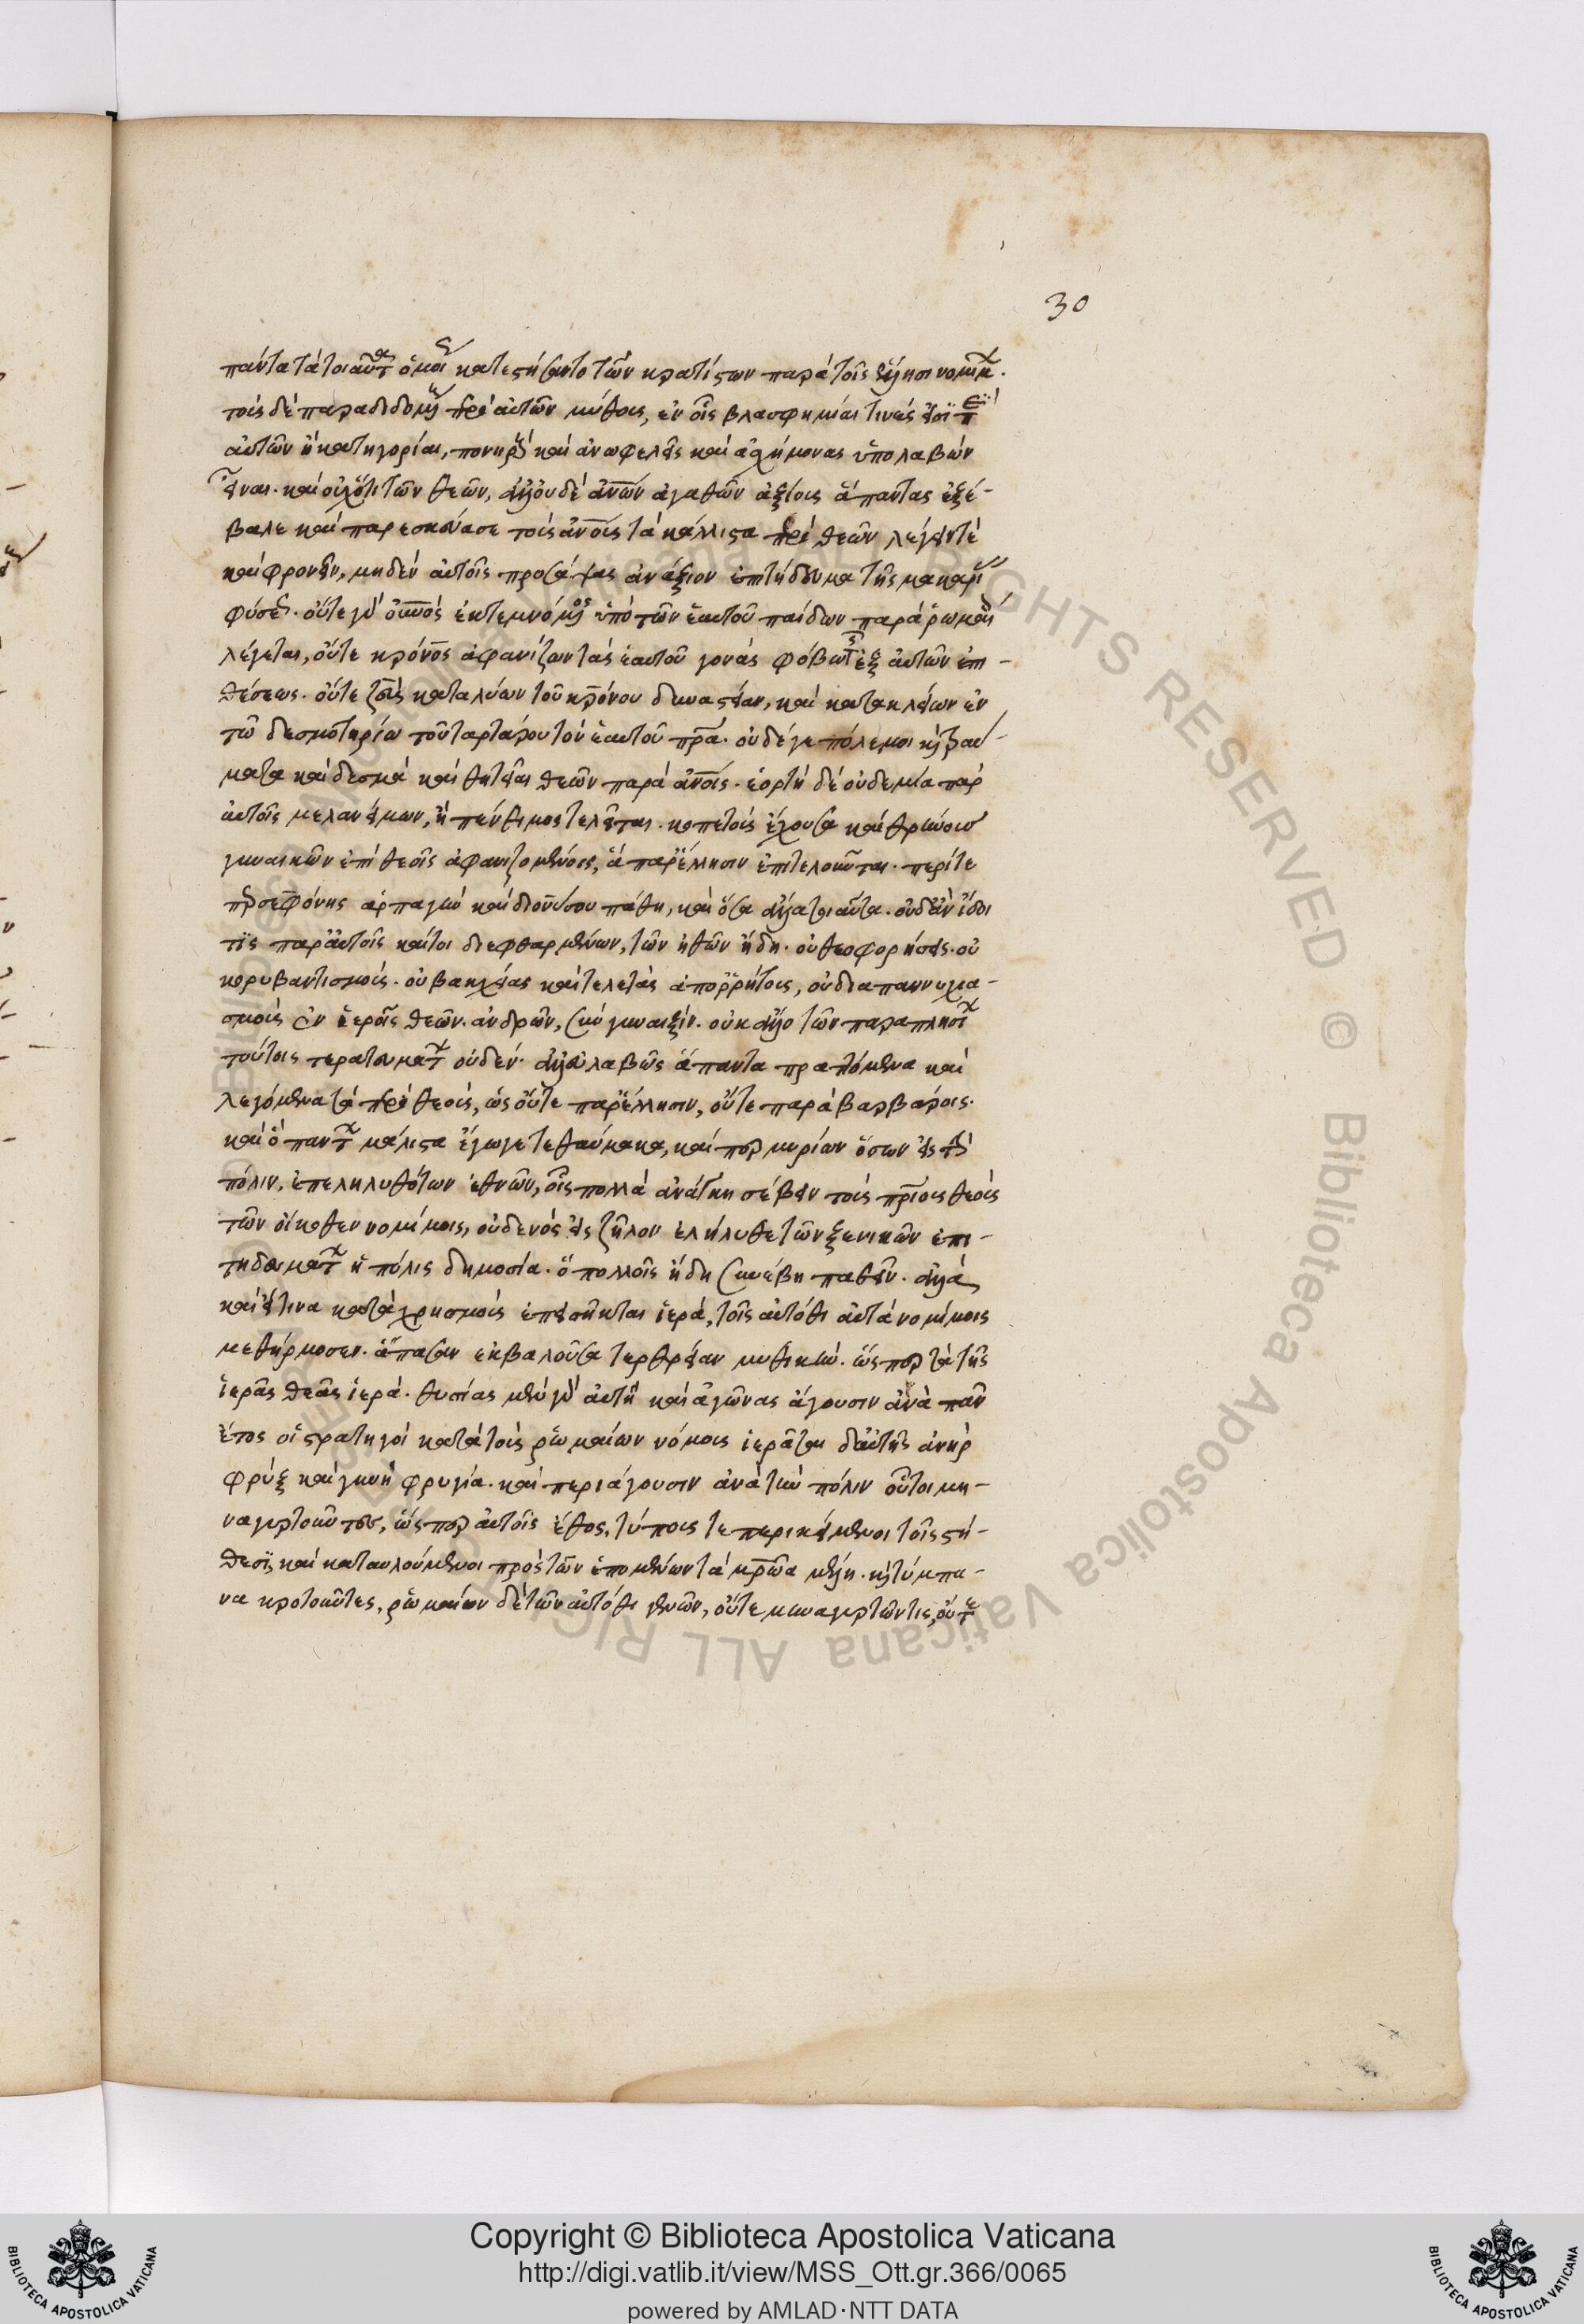 30
πάντα τὰ τοιαῦτα ὁμοίως κατεστήσαντο τῶν κρατίστων παρὰ τοῖς ἕλλησι νομίμων.
τοὺς δὲ παραδεδομένους περὶ αὐτῶν μύθους, ἐν οἷς βλασφημίαι τινές εἰσι κατ'
αὐτῶν ἢ κατηγορίαι, πονηροὺς καὶ ἀνωφελεῖς καὶ ἀσχήμονας ὑπολαβὼν
εἶναι. καὶ οὐχ ὅτι τῶν θεῶν, ἀλλ' οὐδὲ ἀνων ἀγαθῶν ἀξίους ἅπαντας ἐξέ-
βαλε καὶ παρεσκεύασε τοὺς ἀνους τὰ κάλλιστα περὶ θεῶν λέγειν τὲ
καὶ φρονεῖν, μηδὲν αὐτοῖς προσάψας ἀνάξιον ἐπιτήδευμα τῆς μακαρίας
φύσεως. οὔτε γὰρ οὐνος ἐκτεμνόμενος ὑπὸ τῶν ἑαυτοῦ παίδων παρὰ ῥωμαίοις
λέγεται, οὔτε κρόνος ἀφανίζων τὰς ἑαυτοῦ γονὰς φόβω τῆς ἐξ αὐτῶν ἐπι-
θέσεως. οὔτε ζεὺς καταλύων τοῦ κρόνου δυναστείαν, καὶ κατακλείων ἐν
τῶ δεσμοτηρίω τοῦ ταρτάρου τὸν ἑαυτοῦ πρα. οὐδέ γε πόλεμοι καὶ τραύ-
ματα καὶ δεσμὰ καὶ θητεῖαι θεῶν παρὰ ἀνοις. ἑορτὴ δὲ οὐδεμία παρ'
αὐτοῖς μελανείμων, ἢ πένθιμος τελεῖται. κοπετοὺς ἔχουσα καὶ θρήνους
γυναικῶν ἐπὶ θεοῖς ἀφανιζομένοις, ἃ παρ' ἕλλησιν ἐπιτελοῦνται. περί τε
περσεφόνης ἁρπαγὴν καὶ διονύσου πάθη, καὶ ὅσα ἄλλα τοιαῦτα. οὐδ' ἂν ἴδοι
τὶς παρ' αὐτοῖς καίτοι διεφθαρμένων, τῶν ἠθῶν ἤδη. οὐ θεοφορήσεις. οὐ
κορυβαντισμούς. οὐ βακχείας καὶ τελετὰς ἀπορρήτους, οὐ διαπαννυχια-
σμοὺς ἐν ἱεροῖς θεῶν. ἀνδρῶν, σὺν γυναιξίν. οὐκ ἄλλο τῶν παραπλησίων
τούτοις τερατευμάτων οὐδέν. ἀλλ' εὐλαβῶς ἅπαντα πραττόμενα καὶ
λεγόμενα τὰ περὶ θεούς, ὡς οὔτε παρ' ἕλλησιν, οὔτε παρὰ βαρβάροις.
καὶ ὃ πάντων μάλιστα ἔγωγε τεθαύμακα, καίπερ μυρίων ὅσων εἰς τὴν
πόλιν, ἐπεληλυθότων ἐθνῶν, οἷς πολλὰ ἀνάγκη σέβειν τοὺς πρίους θεοὺς
τῶν οἴκοθεν νομίμοις, οὐδενὸς εἰς ζῆλον ἐλήλυθε τῶν ξενικῶν ἐπι-
τηδευμάτων ἡ πόλις δημοσία. ὃ πολλοῖς ἤδη συνέβη παθεῖν. ἀλλὰ
καὶ εἴ τινα κατὰ χρησμοὺς ἐπεισῆκται ἱερά, τοῖς αὐτόθι αὐτὰ νομίμοις
μεθήρμοσεν. ἅπασαν ἐκβαλοῦσα τερθρείαν μυθικήν. ὥσπερ τὰ τῆς
ἱερᾶς θεᾶς ἱερά. θυσίας μὲν γὰρ αὐτῆ καὶ ἀγῶνας ἄγουσιν ἀνὰ πᾶν
ἔτος οἱ στρατηγοὶ κατὰ τοὺς ῥωμαίων νόμους ἱερᾶται δ' αὐτῆς ἀνὴρ
φρὺξ καὶ γυνὴ φρυγία. καὶ περιάγουσιν ἀνὰ τὴν πόλιν οὗτοι μη-
ναγυρτοῦντες, ὥσπερ αὐτοῖς ἔθος, τύπους τε περικείμενοι τοῖς στή-
θεσι, καὶ καταυλούμενοι πρὸς τῶν ἑπομένων τὰ μητρῶα μέλη. καὶ τύμπα-
να κροτοῦντες, ῥωμαίων δὲ τῶν αὐτόθι γενῶν, οὔτε μηναγυρτῶν τις, οὔτε
Copyright © Biblioteca Apostolica Vaticana
http://digi.vatlib.it/view/MSS_Ott.gr.366/0065
powered by AMLAD·NTT DATA